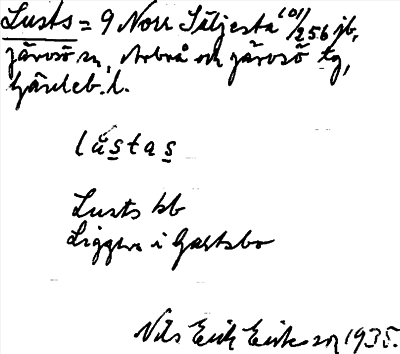 Lusts = 9 Norr Säljesta 101/256 jb,
Järvsö sn, Arbrå och Järvsö tg,
Gävleb. l.
lůs̲tas̲
Lusts kb
Ligger i Gästsbo
Nils Erik Eriksson 1935.